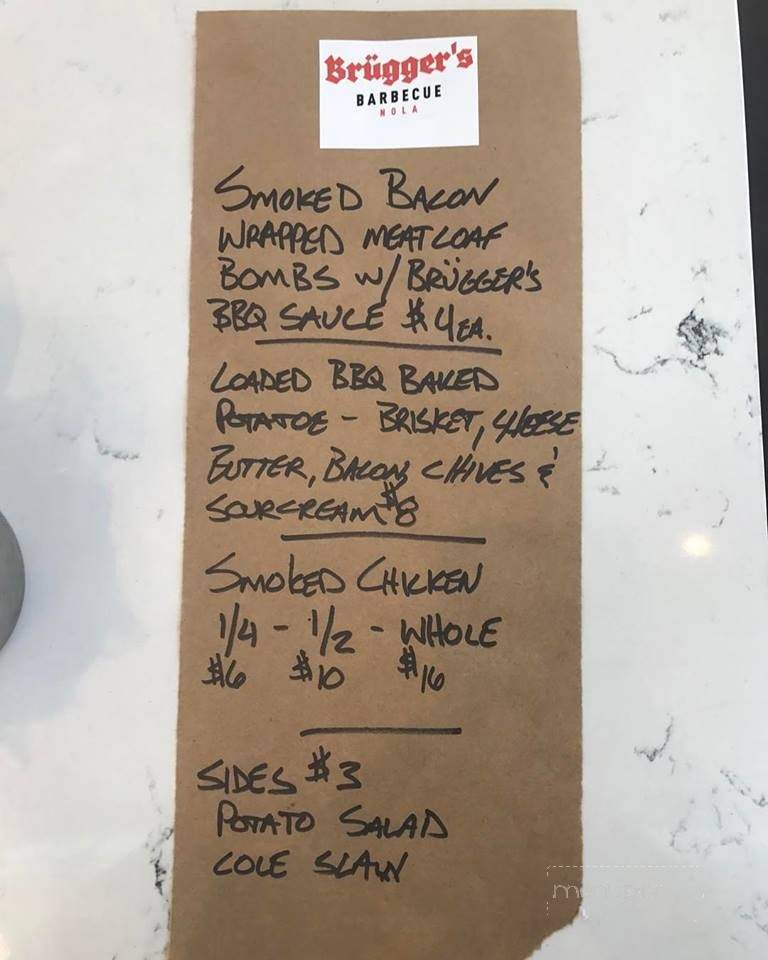 Brügger's
BARBECUE
NOLA
SMOKED BACON
WRAPPED MEATLOAF
BOMBS W/ BRÜGGER'S
BBQ SAUCE $4 EA.
LOADED BBQ BAKED
POTATOE - BRISKET, CHEESE
BUTTER, BACON, CHIVES &
SOURCREAM $8
SMOKED CHICKEN
1/4 - 1/2 - WHOLE
$6 $10 $16
SIDES $3
POTATO SALAD
COLE SLAW